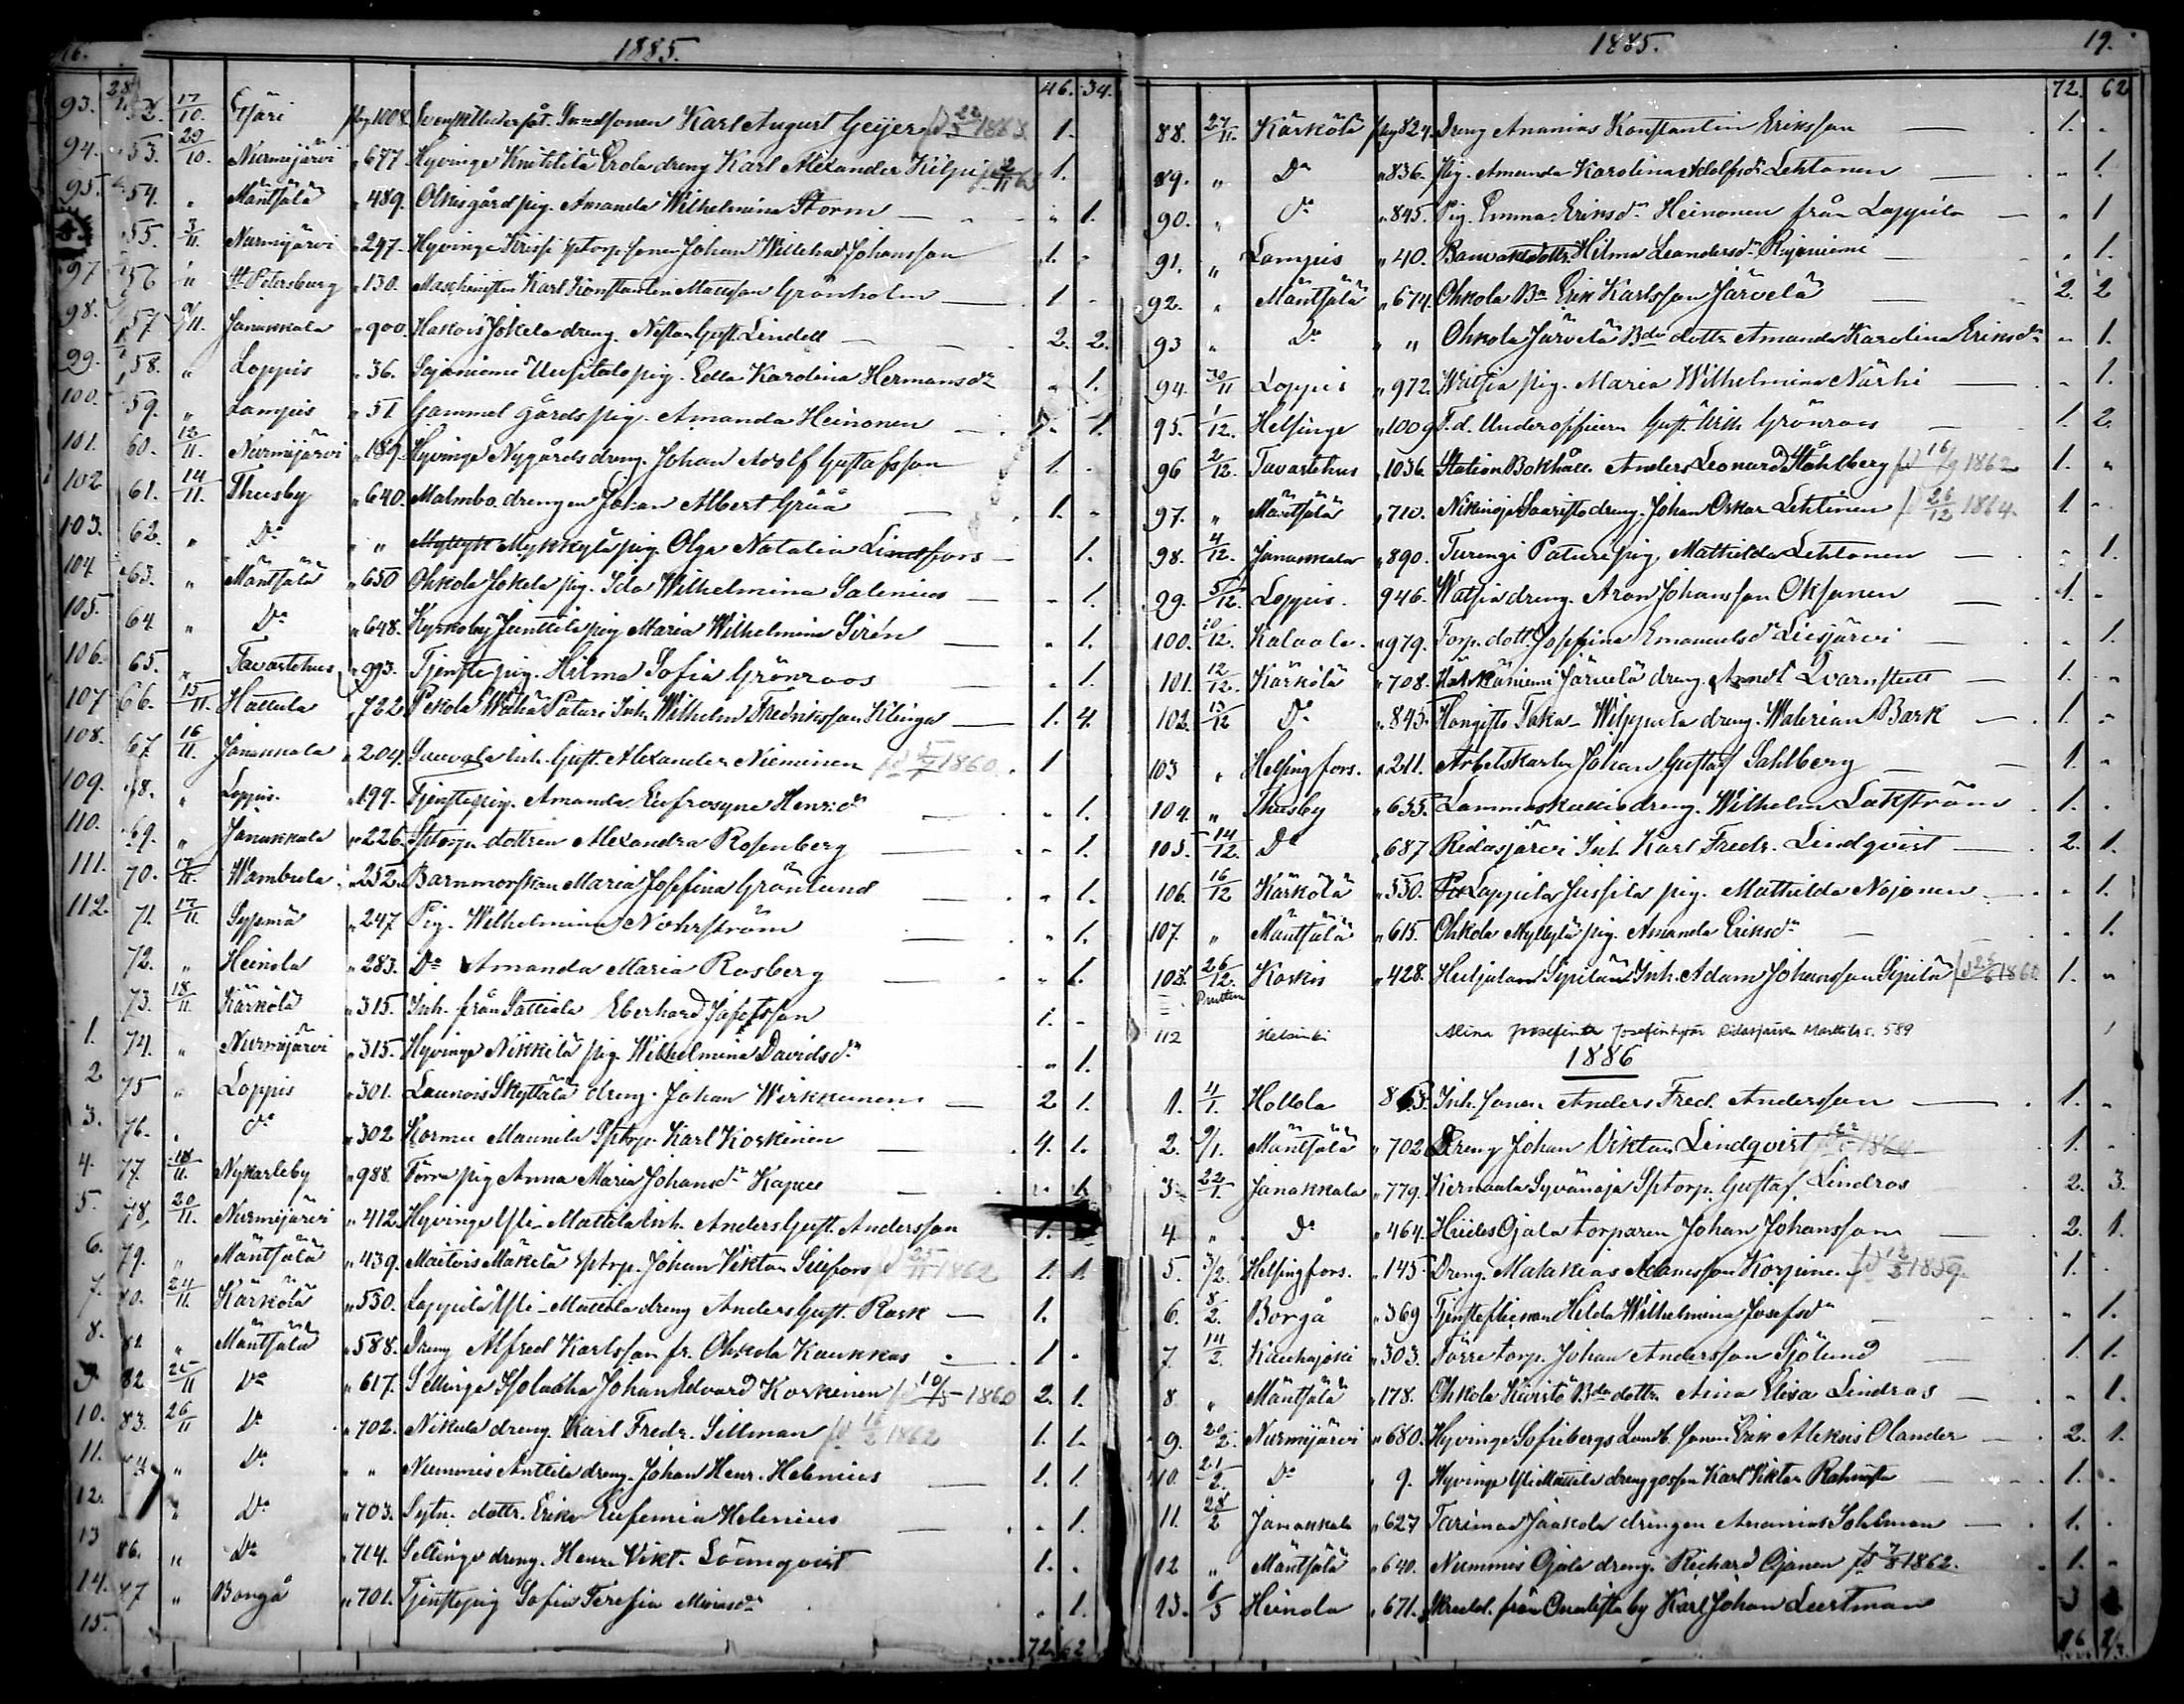 16. 1885.
46. 34.
93. 28 52. 17/10. pag 1008. Svensk Undersåt. Smedsonen Karl August Geijer fd 22/5 1863. 1.
94. 53. 29/10. Nurmijärvi " 677 Hyvinge Knihtilä Erola dreng Karl Alexander Kilpi 1.
95. 54. " Mäntsälä " 489. Olkisgård pig. Amanda Wilhelmina Storm — " 1.
55. 3/11. Nurmijärvi " 247. Hyvinge sptorp sonen Johan Willehad Johansson 1. -
97 56 " St Petersburg " 130. Maschinisten Karl Konstantin Mattsson Grönholm — 1 -
98. 57. 9/11. Janakkala " 900. Hakois Jokela dreng. Nestor Gust. Lindell — 2. 2.
99. 58. " Loppis " 36. Sajaniemi Uusitalo pig. Edla Karolina Hermansdr " 1.
100. 59. " Lampis " 51. Gammel gårds pig. Amanda Heinonen — 1.
101. 60. 12/11. Nurmijärvi " 189. Hyvinge Nygårds dreng. Johan Adolf Gustafsson 1. -
102 61. 14/11. Thusby " 640. Malmbo drengen Johan Albert Gråå — 1. -
103. 62. " Do " " Mykkylä pig. Olga Natalia Lindfors — 1.
104 63. " Mäntsälä " 650 Ohkola Jokela pig. Ida Wilhelmina Salenius — - 1.
105. 64 " Do " 648. Kyrkoby Junttila pig Maria Wilhelmina Sirén — " 1.
106. 65. " Tavastehus " 993. Tjenstepig. Hilma Sofia Grönroos — " 1.
107 66. 15/11. Hattula " 722 Pekola Paturi Inh. Wilhelm Fredriksson Klinga — 1. 4.
108. 67 16/11. Janakkala " 204. Sauvala Inh. Gust. Alexander Nieminen 1860. 1
109. 68. " Loppis. " 199. Tjenstepig. Amanda Eufrosyne Henrdr — " 1.
110. 69. " Janakkala " 226. Sptorp. dottren Alexandra Rosenberg — " 1.
111. 70. 17/11. Wambula. " 252. Barnmorskan Maria Josefina Grönlund — " 1.
112. 71. 17/11 Sysmä " 247 Pig. Wilhelmina Nohrström — " 1.
72. " Heinola " 283. Do Amanda Maria Rosberg — " 1.
73. 18/11. Kärkölä " 315. Inh. från Lattiala Eberhard Josefsson 1. -
1. 74. " Nurmijärvi " 315. Hyvinge Nikkilä pig. Wilhelmina Davidsdr " 1.
2 75 " Loppis " 301. Launois Skyttälä dreng. Johan Wirkkunen — 2 1.
3. 76. " Do " 302 Kormu Maunila Sptorp. Karl Koskinen — 4. 1.
4. 77. 18/11. Nykarleby " 988. Förra pig Anna Maria Johansdr — " 1.
5. 78. 20/11. Nurmijärvi " 412. Hyvinge Yli-Mattila Inh. Anders Gust. Andersson 1.
6. 79. " Mäntsälä " 439. Maitois Mäkelä Sptrp. Johan Viktor fd 25/11 1862 1. 1.
7. 80. 24/11. Kärkölä " 530. Lappila Yli-Mattila dreng Anders Gust. Rask — 1.
8. 81. " Mäntsälä " 588. Dreng Alfred Karlsson fr. Ohkola Kaukkas — 1 -
9 82. 25/11 Do " 617. Sellinge Johan Edvard Koskinen fd 10/5 1860 2. 1.
10. 83. 26/11 Do " 702. Nikula dreng. Karl Fredr. Sillman fd 16/2 1862 1. 1.
11. 84 " Do " " Nummis Anttila dreng. Johan Henr. Helenius 1. 1.
12. " Do " 703. Sytn. dottr. Erika Eufemia Helenius — " 1.
13 86. " Do " 714. Sellinge dreng. Henr. Vikt. Löömqvist 1. -
14. 87 " Borgå " 701. Tjenstepig Sofia Teresia " 1.
15.
72. 62
1885. 19.
72. 62
88. 27/11. Kärkölä pag 824. Dreng Ananias Konstantin Eriksson — 1. -
89. " Do " 836. Pig. Amanda Karolina Adolfsdr Lehtonen — " 1.
90. " Do " 845. Pig. Emma Eriksdr Heinonen från Lappila — " 1
91. " Lampis " 40. Banvaktsdottr. Hilma Leandersdr — " 1.
92. " Mäntsälä " 674. Ohkola Bn Erik Karlsson Järvelä — 2. 2
93 " Do " " Ohkola Järvelä Bde dottr Amanda Karolina Eriksdr " 1.
94. 30/11 Loppis " 972. Watsia pig. Maria Wilhelmina Närhi — " 1.
95. 1/12. Helsinge " 1009 F.d. Underofficern Gust. Erik Grönroos — 1. 2.
96 2/12. Tavastehus " 1036. Station Bokhåll. Anders Leonard Ståhlberg fd 16/9 1862 1. "
97. " Mäntsälä " 710. Nikinoja Saaristo dreng. Johan Oskar Lehtinen fd 26/12 1864. 1. -
98. 4/12. Janakkala " 890. Turengi Paturi pig. Mathilda Lehtonen — " 1.
99. 5/12. Loppis. 946. Watsia dreng. Aron Johansson Oksanen — 1. -
100. 10/12. Kalvola. " 979. Torp. dott. Josefina Emanuelsdr Liesjärvi — " 1.
101. 12/12. Kärkölä " 708. Hähkäniemi Järvelä dreng. Qvarnstett — 1. "
102. 13/12 Do " 845. Hongisto Taka-Wilppula dreng. Walerian Bark — 1. "
103 " Helsingfors. " 211. Arbetskarlen Johan Gustaf Sahlberg — 1. "
104. " Thusby " 655. Lammaskallio dreng. Wilhelm Lakström 1. "
105. 14/12. Do " 687 Ridasjärvi Inh. Karl Fredr. Lindqvist — 2. 1.
106. 16/12 Kärkölä " 530. Lappila Jussila pig. Mathilda Nojonen — " 1.
107. " Mäntsälä " 615. Ohkola Myllylä pig. Amanda Eriksdr — " 1.
108. 26/12. Koskis " 428. Huljala Sipilän Inh. Adam Johansson Sipilä 1860. 1. "
112 Helsinki Alina Josefina Josefintytär Ridasjärvi Mattila s. 589 1
1886
1. 4/1. Hollola 863. Inh. sonen Anders Fred. Andersson — 1. "
2. 9/1. Mäntsälä " 702 Dreng Johan Viktor Lindqvist 1864 1. "
3. 22/1. Janakkala " 779. Kernaala Syvänoja Sptorp. Gustaf Lindros — 2. 3.
4 " Do " 464. Hiides Ojala torparen Johan Johansson — 2. 1.
5. 3/2. Helsingfors. " 145. Dreng. Malakias Adamsson Korpinen 1859. 1. -
6. 8/2. Borgå " 369 Tjensteflickan Hilda Wilhelmina Josefsdr " 1.
7 14/2. Kauhajoki " 303. Förre torp. Johan Andersson Sjölund — 1. 1.
8 " Mäntsälä " 178. Ohkola Bde dottr. Aina Elisa Lindros — " 1.
9. 20/2. Nurmijärvi " 680. Hyvinge Sofiebergs Landb. sonen Erik Aleksis Olander — 2. 1.
10. 21/2. Do " 9. Hyvinge Yli Mattila dreng gossen Karl Viktor — 1. "
11. 28/2 Janakkala " 627 Tarinmaa Jaakola drengen Ananias Sohlman — 1. -
12 " Mäntsälä " 640. Nummis Ojala dreng. Richard Ojanen fd 7/8 1862. 1. "
13. 6/3 Heinola " 671. Skredd. från by Karl Johan Leertman 3